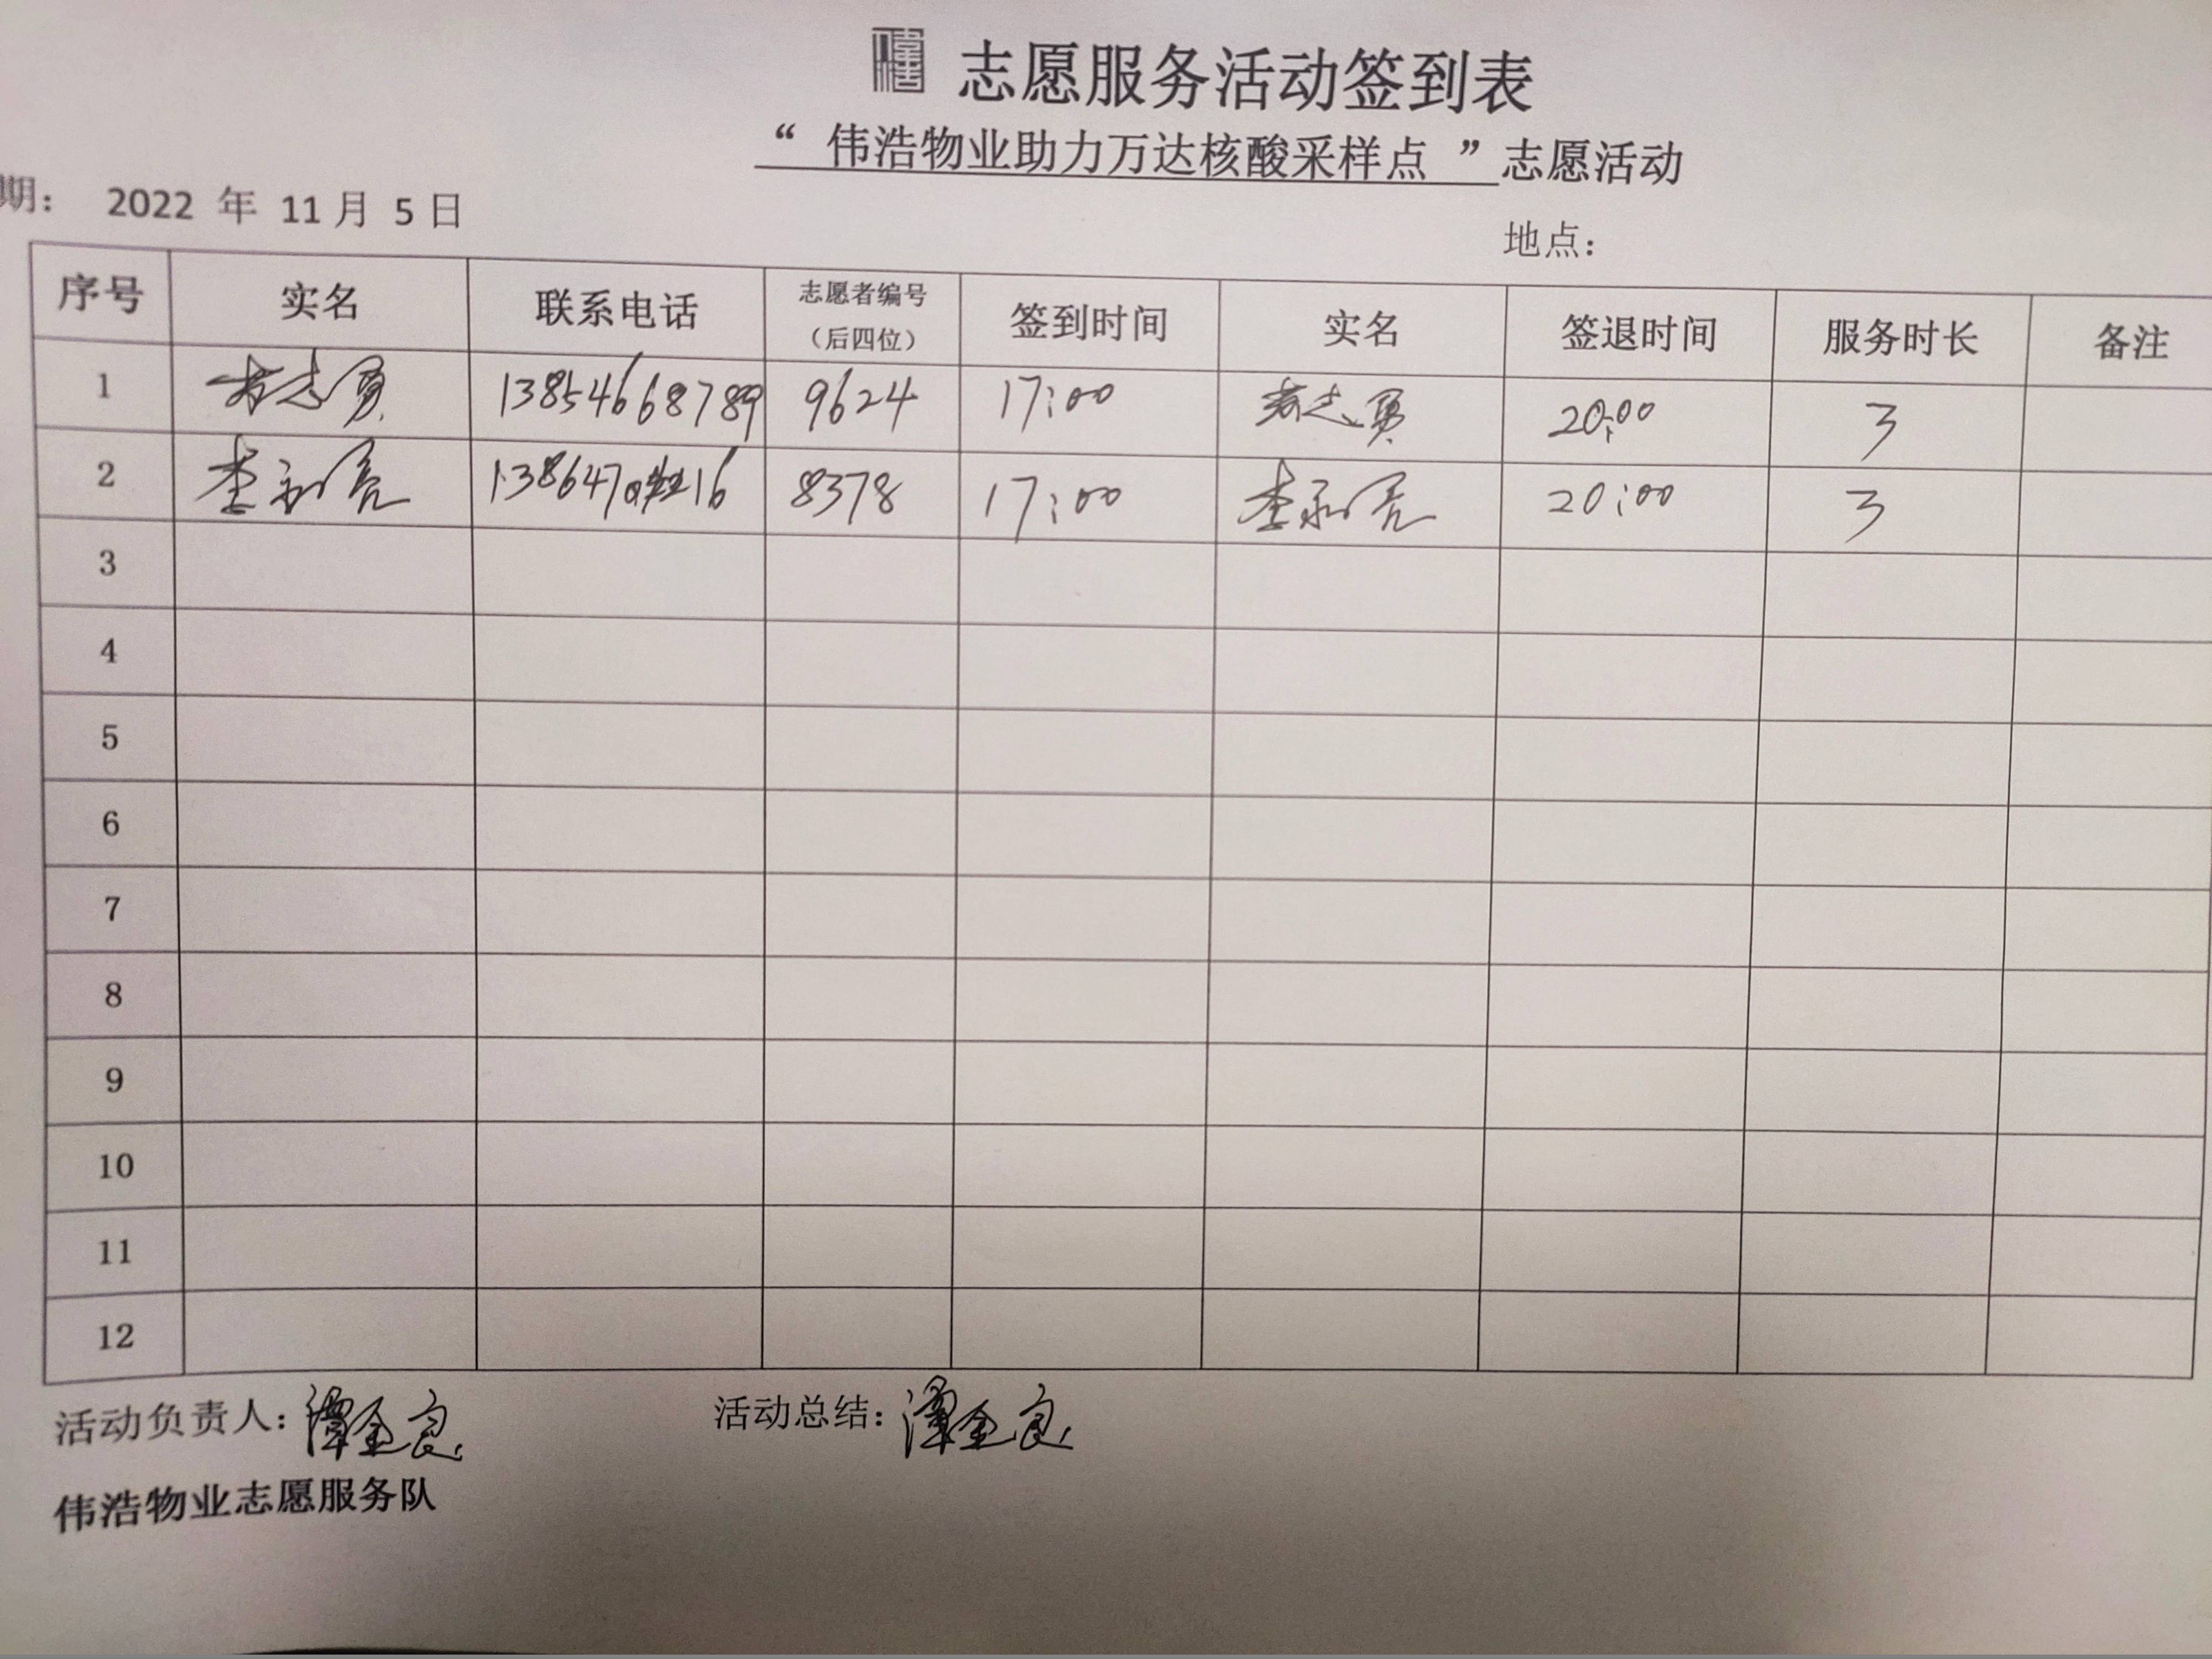 志愿服务活动签到表
“ 伟浩物业助力万达核酸采样点 ”志愿活动
期： 2022 年 11 月 5 日
地点：
序号 实名 联系电话 志愿者编号（后四位） 签到时间 实名 签退时间 服务时长 备注
1 志勇 13854668789 9624 17:00 志勇 20:00 3
2 李永亮 138647 16 8378 17:00 李永亮 20:00 3
3
4
5
6
7
8
9
10
11
12
活动负责人：谭金良 活动总结：谭金良
伟浩物业志愿服务队